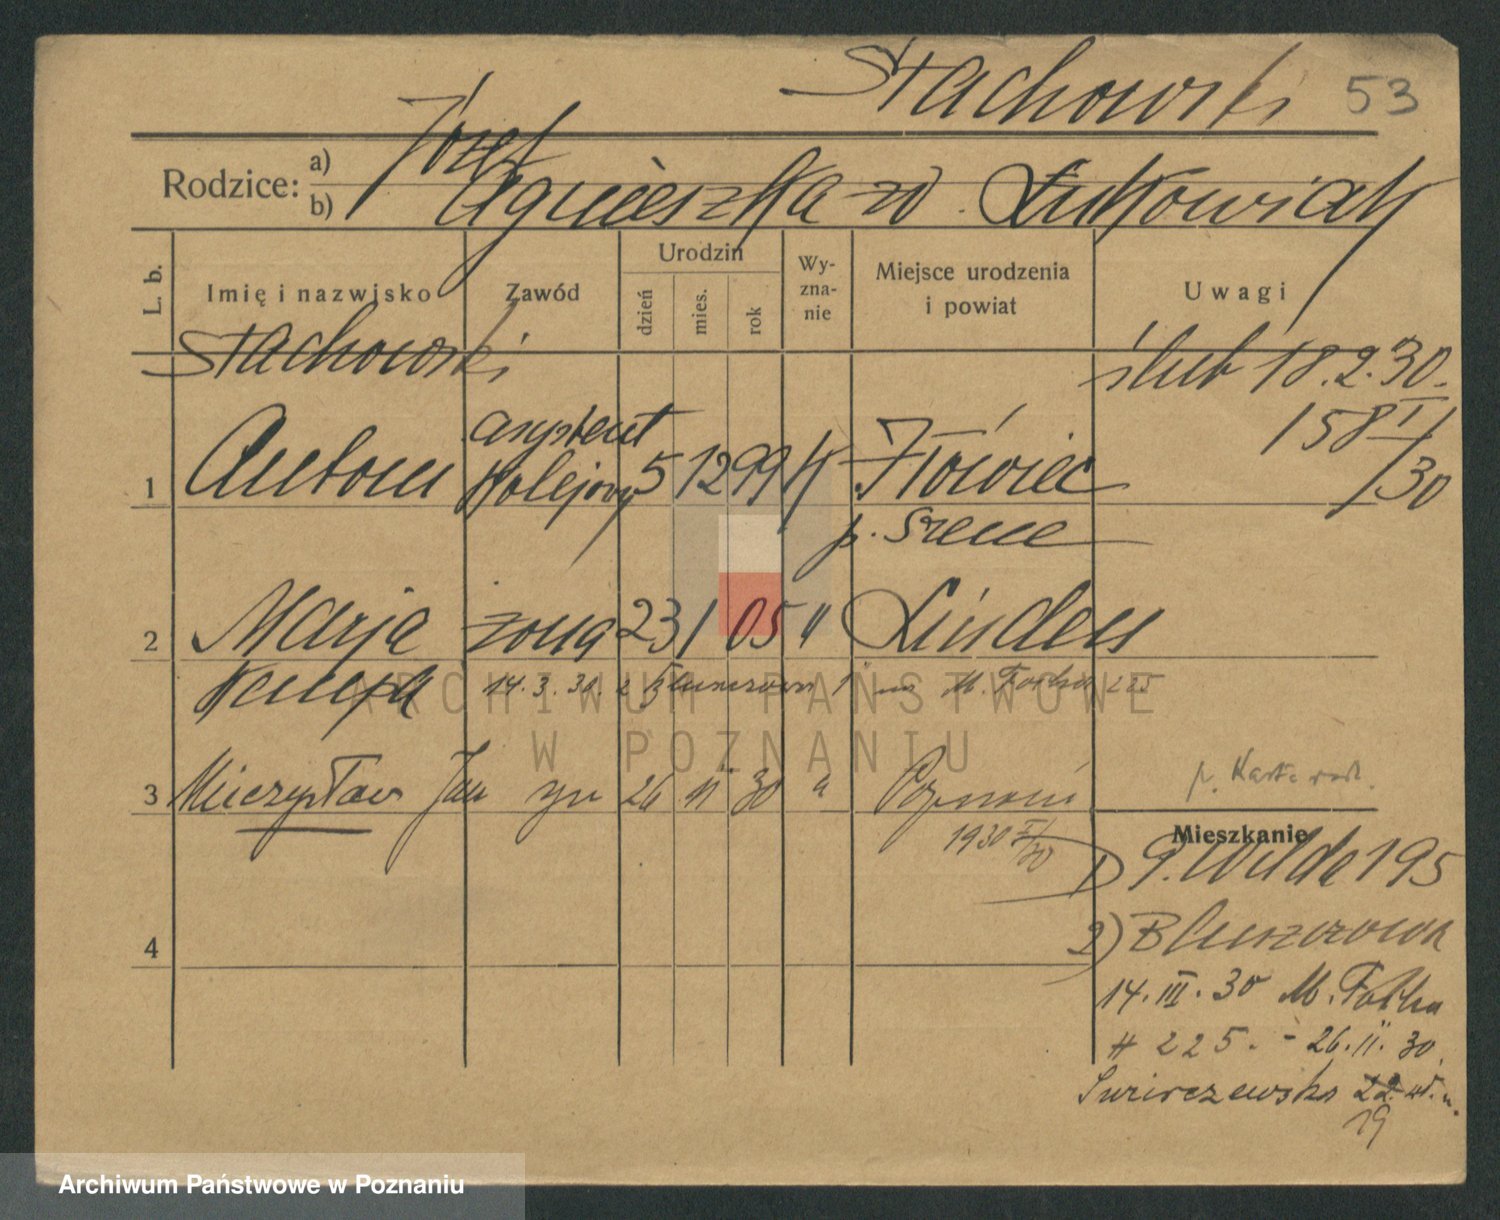 Stachowski 53
Rodzice:
a) Józef
b) Agnieszka zd. Łukowiak
L. b.
Imię i nazwisko
Zawód
Urodzin
dzień
mies.
rok
Wy-
zna-
nie
Miejsce urodzenia
i powiat
Uwagi
Stachowski
ślub 18.2.30.
158 I/30
1 Antoni asystent kolejowy 5 12 99 k Iłówiec
p. Śrem
2 Marja żona 23 1 05 " Linden
Kempa 14.3.30. z na M. Focha 225
ARCHIWUM PAŃSTWOWE
W POZNANIU
3 Mieczysław Jan syn 26 11 30 " Poznań
1930
p. Karta
Mieszkanie
1) G. Wilda 195
4
2)
14. III. 30 M. Focha
# 225. - 26. 11. 30.
22
19
Archiwum Państwowe w Poznaniu